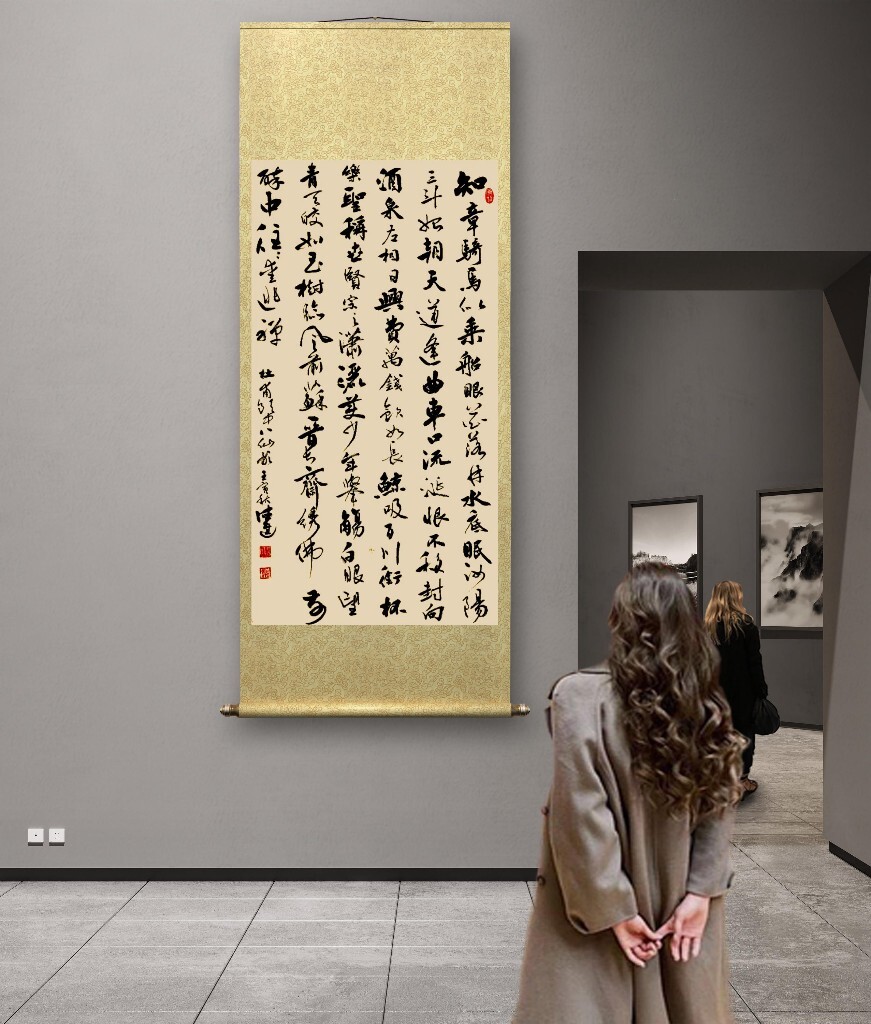 知章騎馬似乘船眼花落井水底眠汝陽
三斗始朝天道逢曲車口流涎恨不移封向
酒泉左相日興費萬錢飲如長鯨吸百川銜杯
樂聖稱世賢宗之瀟灑美少年舉觴白眼望
青天皎如玉樹臨風前蘇晉長齋绣佛前
醉中往〻愛逃禪 杜甫飲中八仙歌